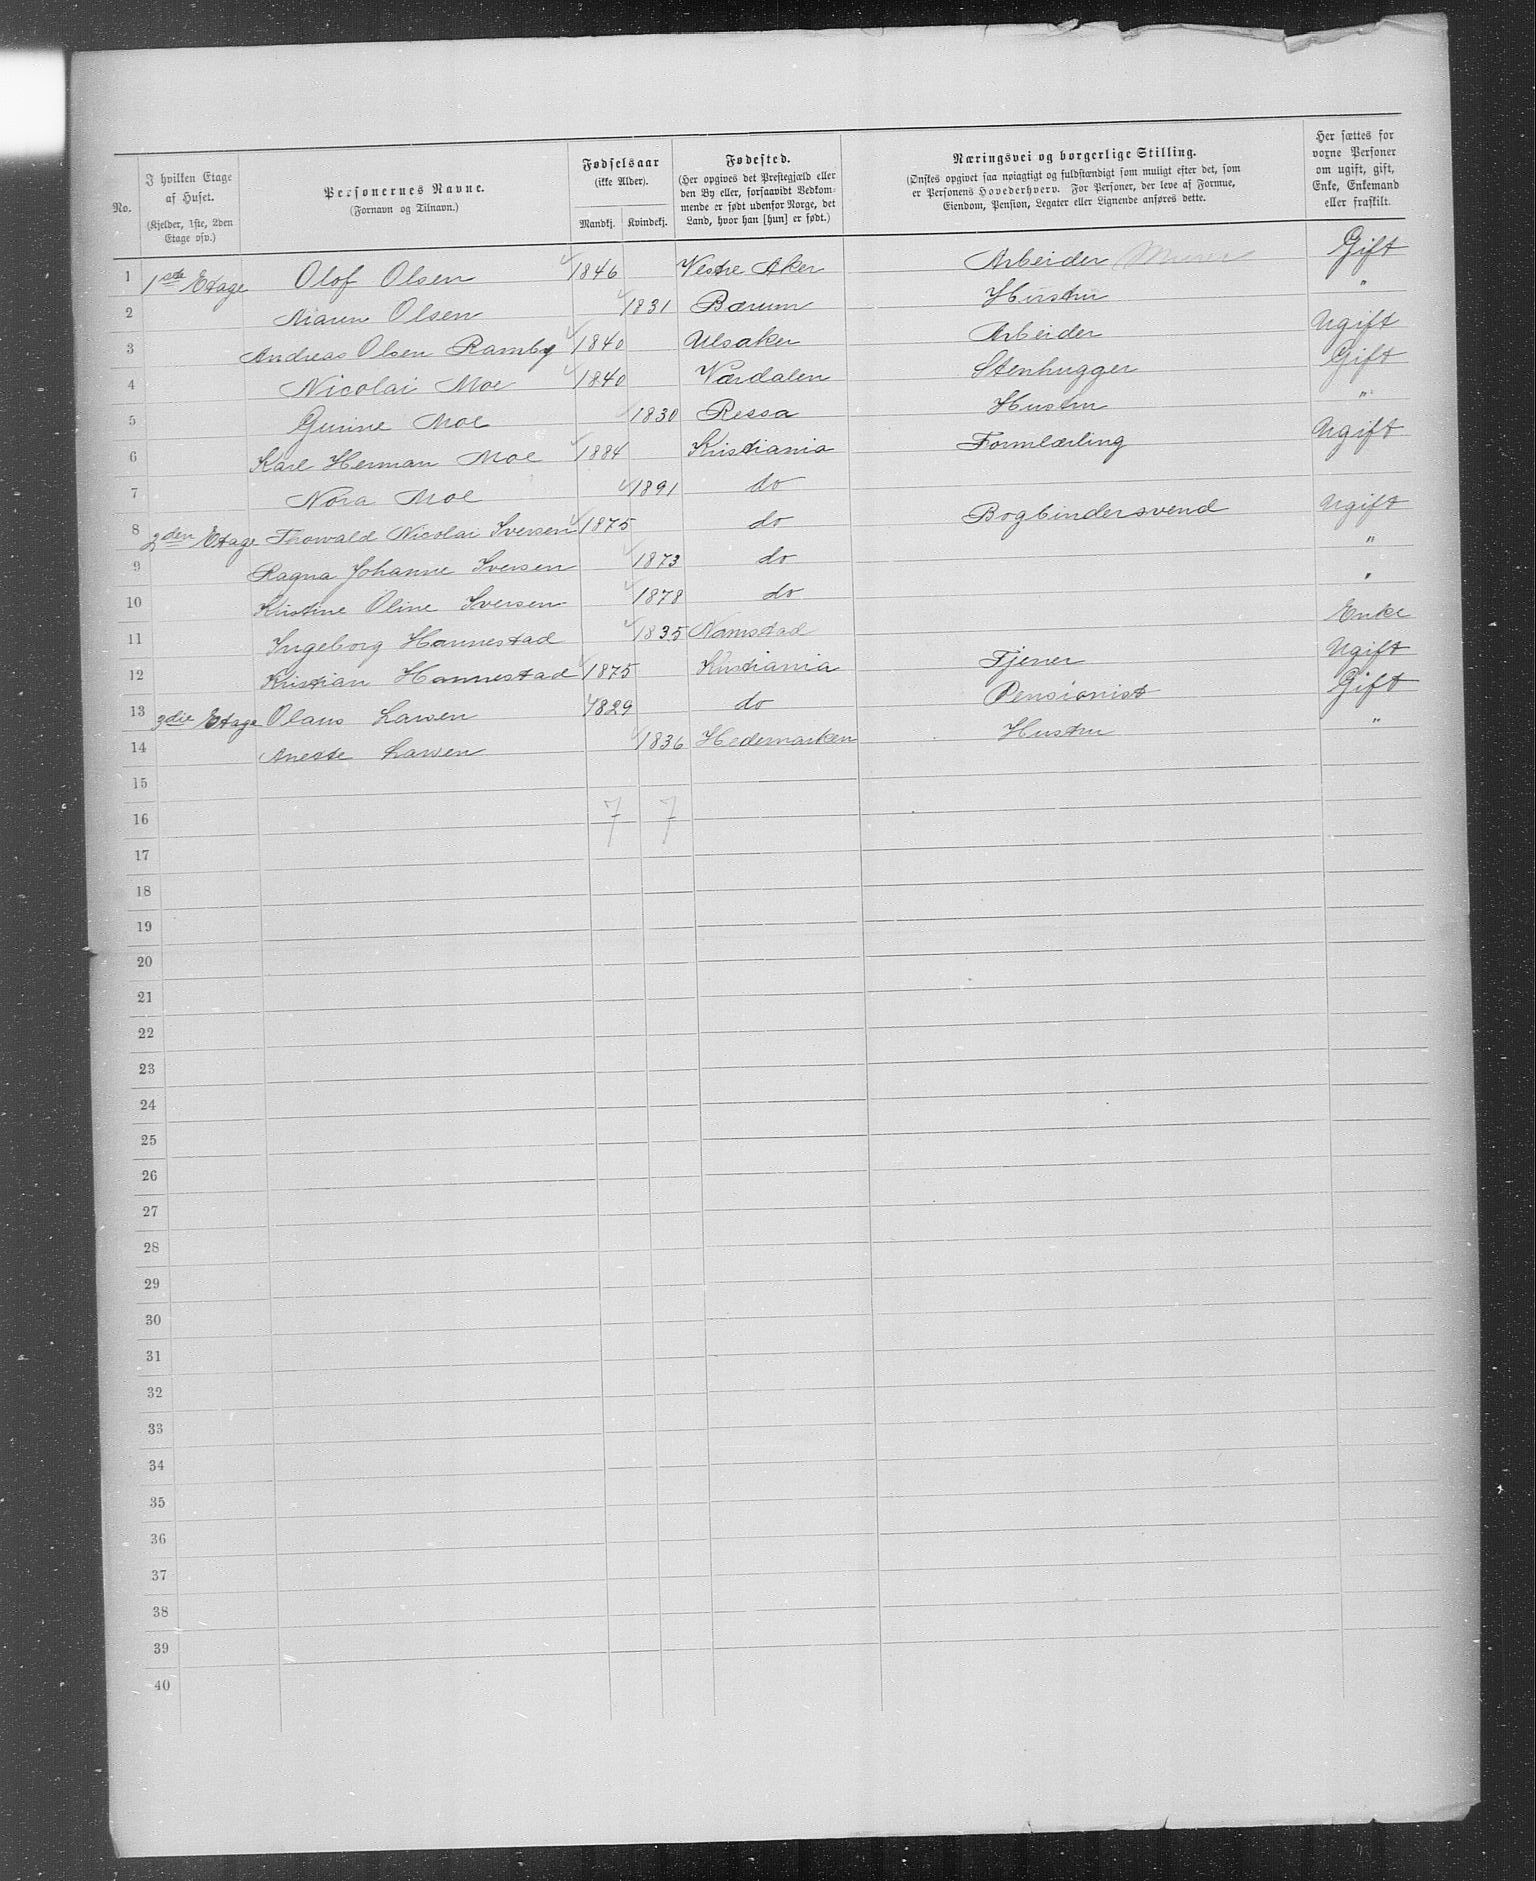 No. | I hvilken Etage af Huset. (Kjelder, 1ste, 2den Etage osv.) | Personernes Navne. (Fornavn og Tilnavn.) | Fødselsaar (ikke Alder). Mandkj. | Kvindekj. | Fødested. (Her opgives det Prestegjæld eller den By eller, forsaavidt Vedkommende er født udenfor Norge, det Land, hvor han [hun] er født.) | Næringsvei og borgerlige Stilling. (Ønskes opgivet saa nøiagtigt og fuldstændigt som muligt efter det, som er Personens Hovederhverv. For Personer, der leve af Formue, Eiendom, Pension, Legater eller Lignende anføres dette. | Her sættes for voxne Personer om ugift, gift, Enke, Enkemand eller fraskilt.
1 1ste Etage Olof Olsen 1846 Vestre Aker Arbeider Murer Gift
2 Maren Olsen 1831 Bærum Hustru "
3 Andreas Olsen Ramby 1840 Ulsaker Arbeider Ugift
4 Nicolai Moe 1840 Værdalen Stenhugger Gift
5 Gurine Moe 1830 Ressa Hustru "
6 Karl Herman Moe 1884 Kristiania Formlærling Ugift
7 Nora Moe 1891 do
8 2den Etage Thorvald Nicolai Iversen 1875 do Bogbindersvend Ugift
9 Ragna Johanne Iversen 1873 do "
10 Kristine Oline Iversen 1878 do "
11 Ingeborg Hannestad 1835 Namsdad Enke
12 Kristian Hannestad 1875 Kristiania Tjener Ugift
13 3die Etage Olaus Larsen 1829 do Pensionist Gift
14 Anette Larsen 1836 Hedemarken Hustru "
15
16 7 7
17
18
19
20
21
22
23
24
25
26
27
28
29
30
31
32
33
34
35
36
37
38
39
40